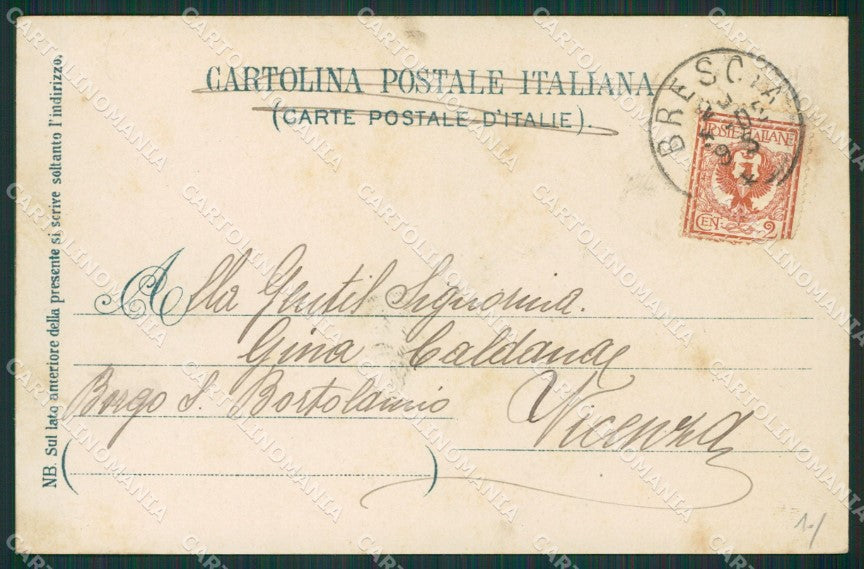 CARTOLINA POSTALE ITALIANA
(CARTE POSTALE D'ITALIE).
BRESCIA
POSTE ITALIANE
CEN. 2
NB. Sul lato anteriore della presente si scrive soltanto l'indirizzo.
Alla Gentil Signorina.
Gina Caldana
Borgo S. Bortolamio Vicenza
( )
1-/
CARTOLINOMANIA